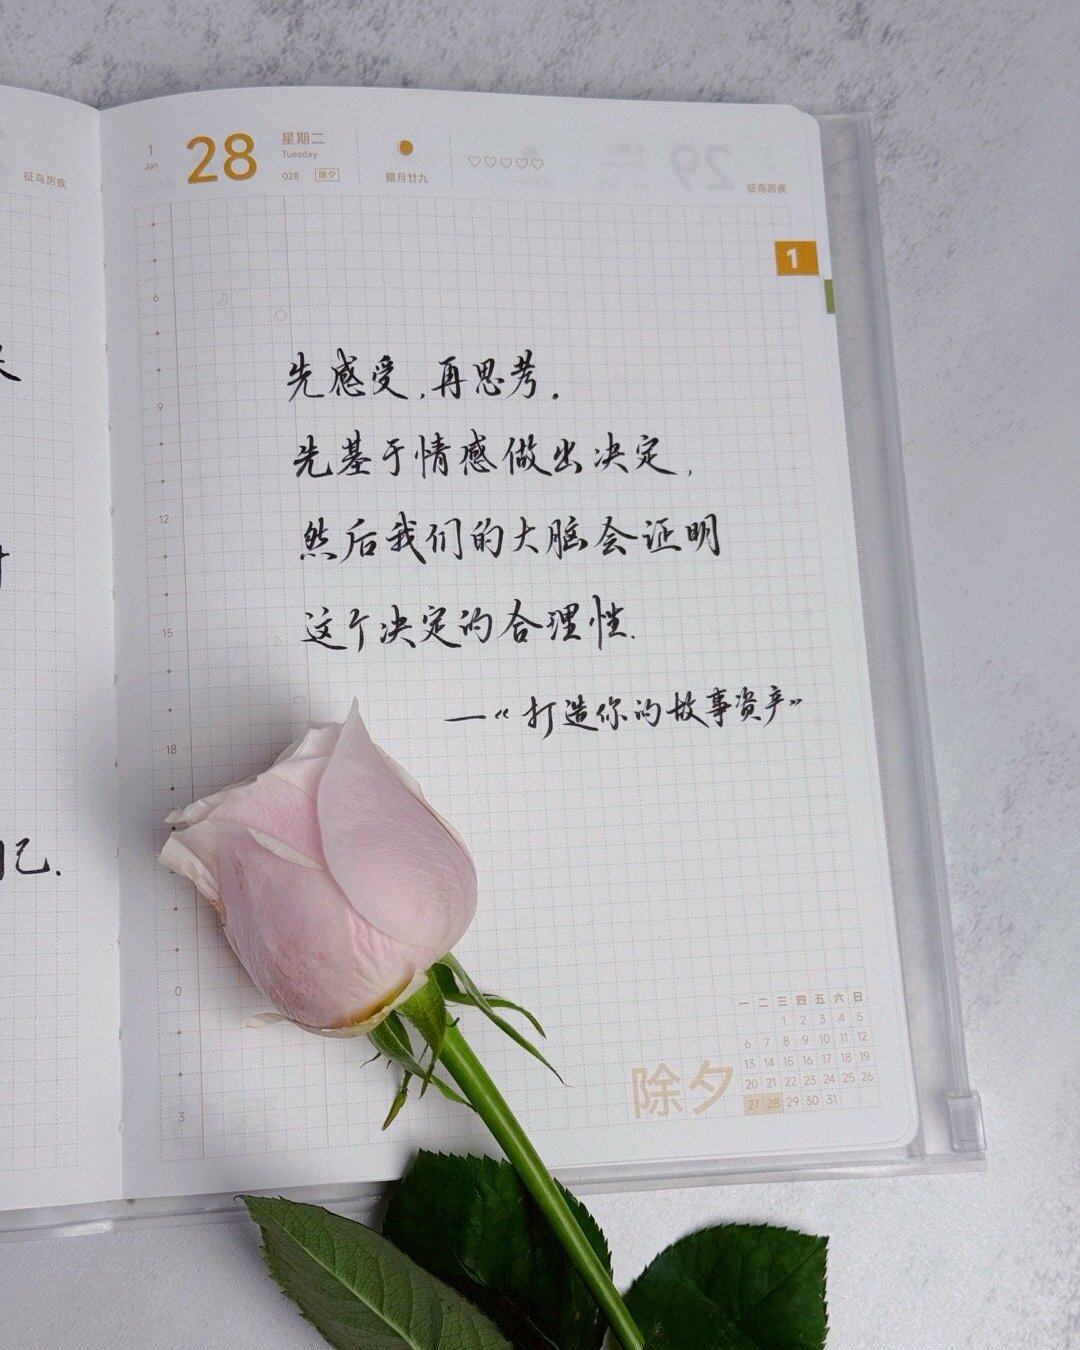 征鸟厉疾
1
Jan
28
星期二
Tuesday
028 除夕
腊月廿九
♡♡♡♡♡
29
征鸟厉疾
1
6
9
12
15
18
0
3
先感受,再思考.
先基于情感做出决定,
然后我们的大脑会证明
这个决定的合理性.
—《打造你的故事资产》
己.
除夕
一 二 三 四 五 六 日
1 2 3 4 5
6 7 8 9 10 11 12
13 14 15 16 17 18 19
20 21 22 23 24 25 26
27 28 29 30 31